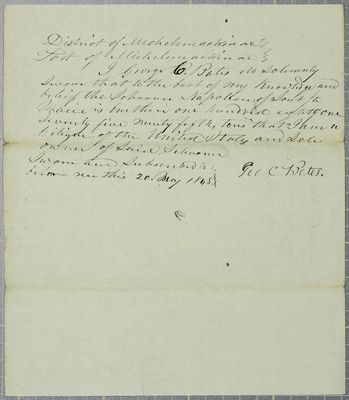 District of Michelmackinac }
Port of Michelmackinac }
I George C. Bates do Solemnly
Swear that to the best of my knowledge and
belief the Schooner Napoleon of Sault Ste
Marie is burthen one hundred eighty one
Seventy five ninety fifths tons that I am a
Citizen of the United States and Sole
owner of Said Schooner
Sworn and Subscribed to
before me this 20. May 1845 }
Geo C Bates.